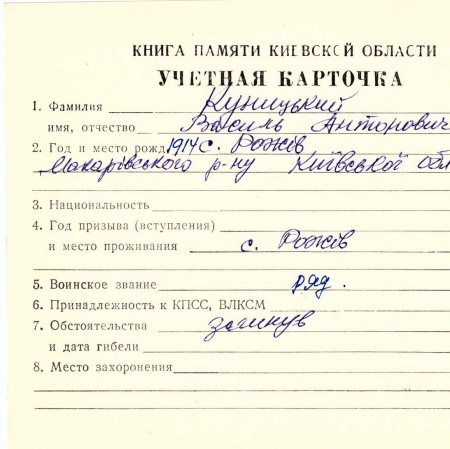 КНИГА ПАМЯТИ КИЕВСКОЙ ОБЛАСТИ
УЧЕТНАЯ КАРТОЧКА
1. Фамилия Куницький
имя, отчество Василь Антонович
2. Год и место рожд. 1914 с. Рожів
Макарівського р-ну Київської обл
3. Национальность
4. Год призыва (вступления)
и место проживания с. Рожів
5. Воинское звание ряд.
6. Принадлежность к КПСС, ВЛКСМ
7. Обстоятельства загинув
и дата гибели
8. Место захоронения